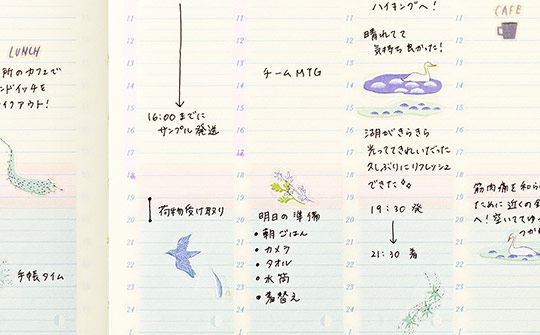 LUNCH
所のカフェで
ンドイッチを
イクアウト!
手帳タイム
16:00までに
サンプル発送
荷物受け取り
チームMTG
明日の準備
・朝ごはん
・カメラ
・タオル
・水筒
・着替え
ハイキングへ!
晴れてて
気持ち良かった!
湖がきらきら
光っててきれいだった
久しぶりにリフレッシュ
できた
19:30 発
21:30 着
CAFE
筋肉痛を和ら
ために近くの
へ!空いててゆっ
つか
11
12
13
14
15
16
17
18
19
20
21
22
23
24